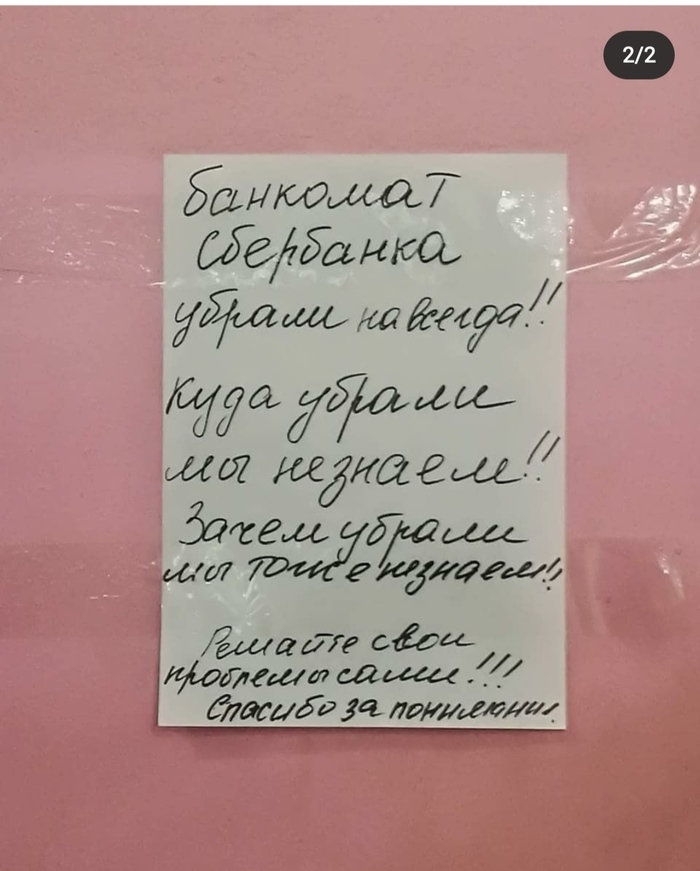 2/2
банкомат
Сбербанка
убрали навсегда!!
куда убрали
мы незнаем!!
Зачем убрали
мы тоже незнаем!!
Решайте свои
проблемы сами!!!
Спасибо за понимани!